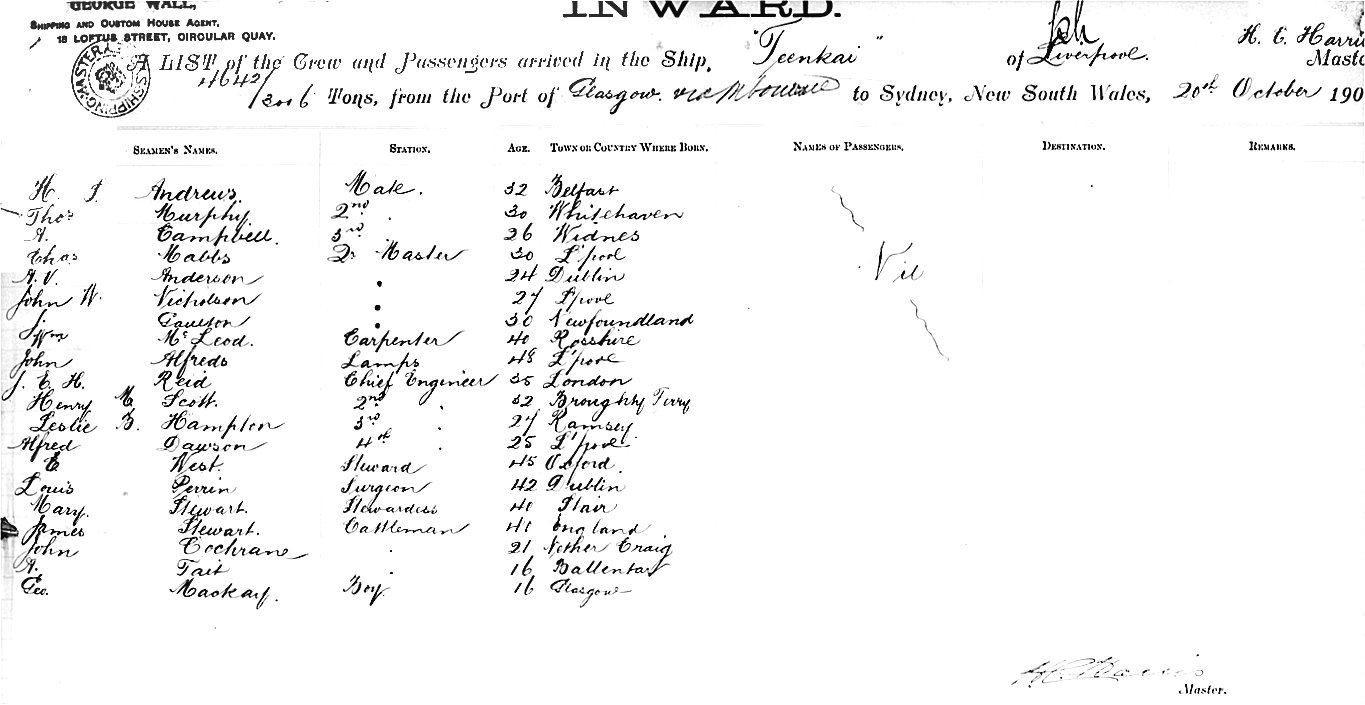 GEORGE WALL,
SHIPPING AND CUSTOM HOUSE AGENT,
18 LOFTUS STREET, CIRCULAR QUAY.
INWARD.
H. C. Harris
A LIST of the Crew and Passengers arrived in the Ship, "Teenkai" of Liverpool. Master
4642/3006 Tons, from the Port of Glasgow. via Mbourne to Sydney, New South Wales, 20th October 190
SEAMEN'S NAMES. STATION. AGE. TOWN OR COUNTRY WHERE BORN. NAMES OF PASSENGERS. DESTINATION. REMARKS.
H. J. Andrews. Mate. 32 Belfast
Thos Murphy. 2nd . 30 Whitehaven
A. Campbell. 3rd 26 Widnes
Chas Mabbs Qr Master 30 L'pool
Nil
A. V. Anderson 24 Dublin
John W. Nicholson 27 L'pool
J. Gaulton 30 Newfoundland
Wm McLeod. Carpenter 40 Rosshire
John Alfreds Lamps 48 L'pool
J. E. H. Reid Chief Engineer 35 London
Henry M. Scott. 2nd . 32 Broughty Ferry
Leslie B. Hampton 3rd . 27 Ramsey
Alfred Dawson 4th . 25 L'pool
E West. Steward 45 Oxford.
Louis Perrin Surgeon 42 Dublin
Mary. Stewart. Stewardess 40 Stair
James Stewart. Cattleman 41 England
John Cochrane . 21 Nether Craig
A. Tait . 16
Geo. Mackay. Boy. 16 Glasgow
H.C. Harris
Master.